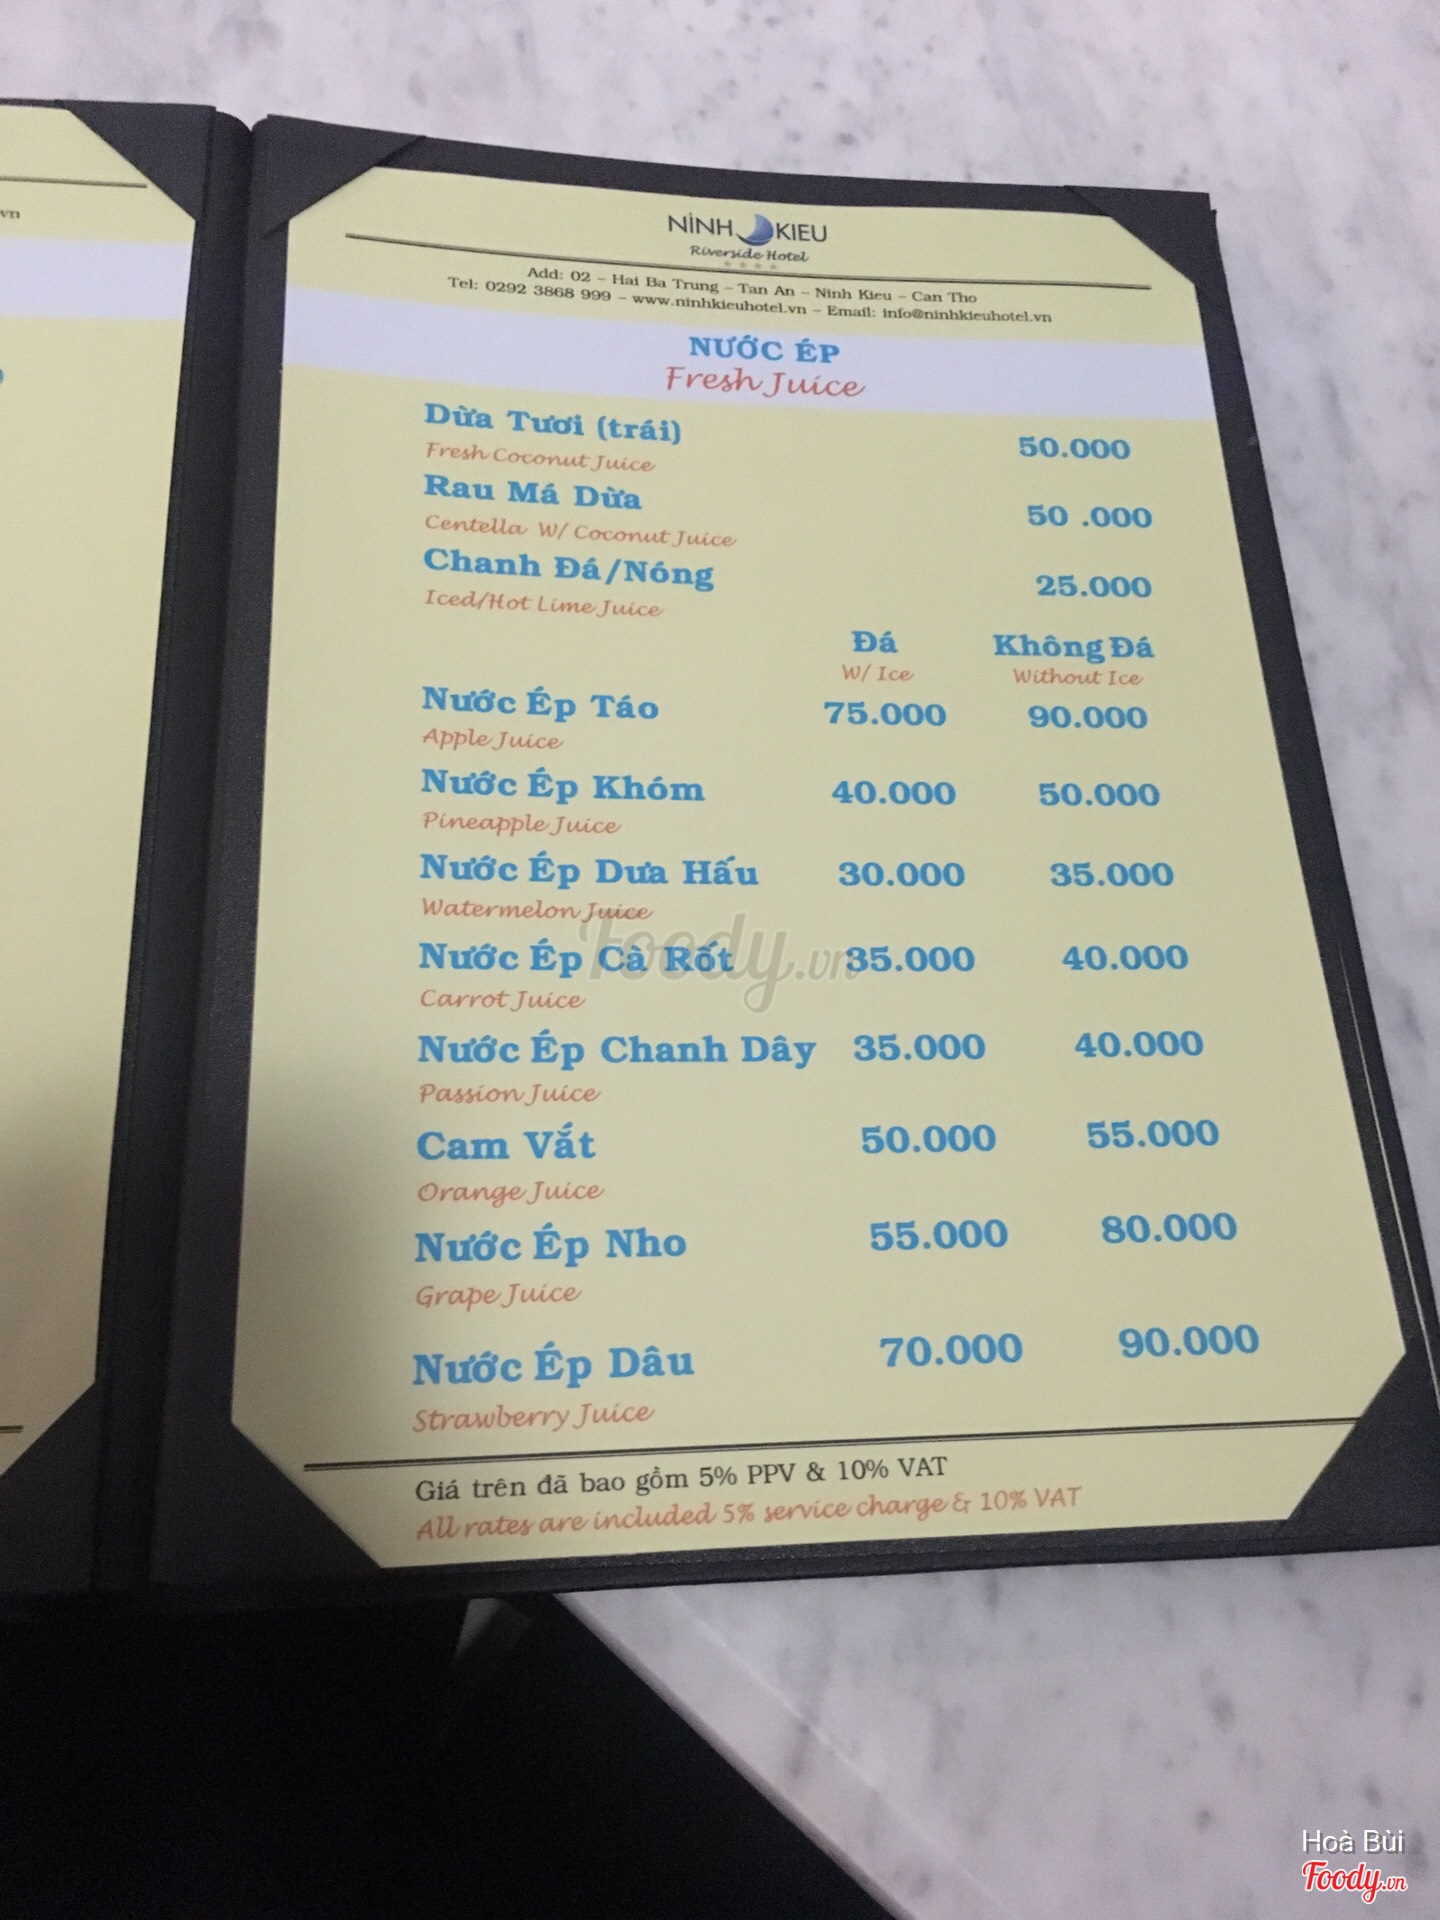 vn
NINH KIEU
Riverside Hotel
Add: 02 – Hai Ba Trung – Tan An – Ninh Kieu – Can Tho
Tel: 0292 3868 999 – www.ninhkieuhotel.vn – Email: info@ninhkieuhotel.vn
NƯỚC ÉP
Fresh Juice
Dừa Tươi (trái) 50.000
Fresh Coconut Juice
Rau Má Dừa 50 .000
Centella W/ Coconut Juice
Chanh Đá/Nóng 25.000
Iced/Hot Lime Juice
Đá Không Đá
W/ Ice Without Ice
Nước Ép Táo 75.000 90.000
Apple Juice
Nước Ép Khóm 40.000 50.000
Pineapple Juice
Nước Ép Dưa Hấu 30.000 35.000
Watermelon Juice
Nước Ép Cà Rốt 35.000 40.000
Foody.vn
Carrot Juice
Nước Ép Chanh Dây 35.000 40.000
Passion Juice
Cam Vắt 50.000 55.000
Orange Juice
Nước Ép Nho 55.000 80.000
Grape Juice
Nước Ép Dâu 70.000 90.000
Strawberry Juice
Giá trên đã bao gồm 5% PPV & 10% VAT
All rates are included 5% service charge & 10% VAT
Hoà Bùi
Foody.vn